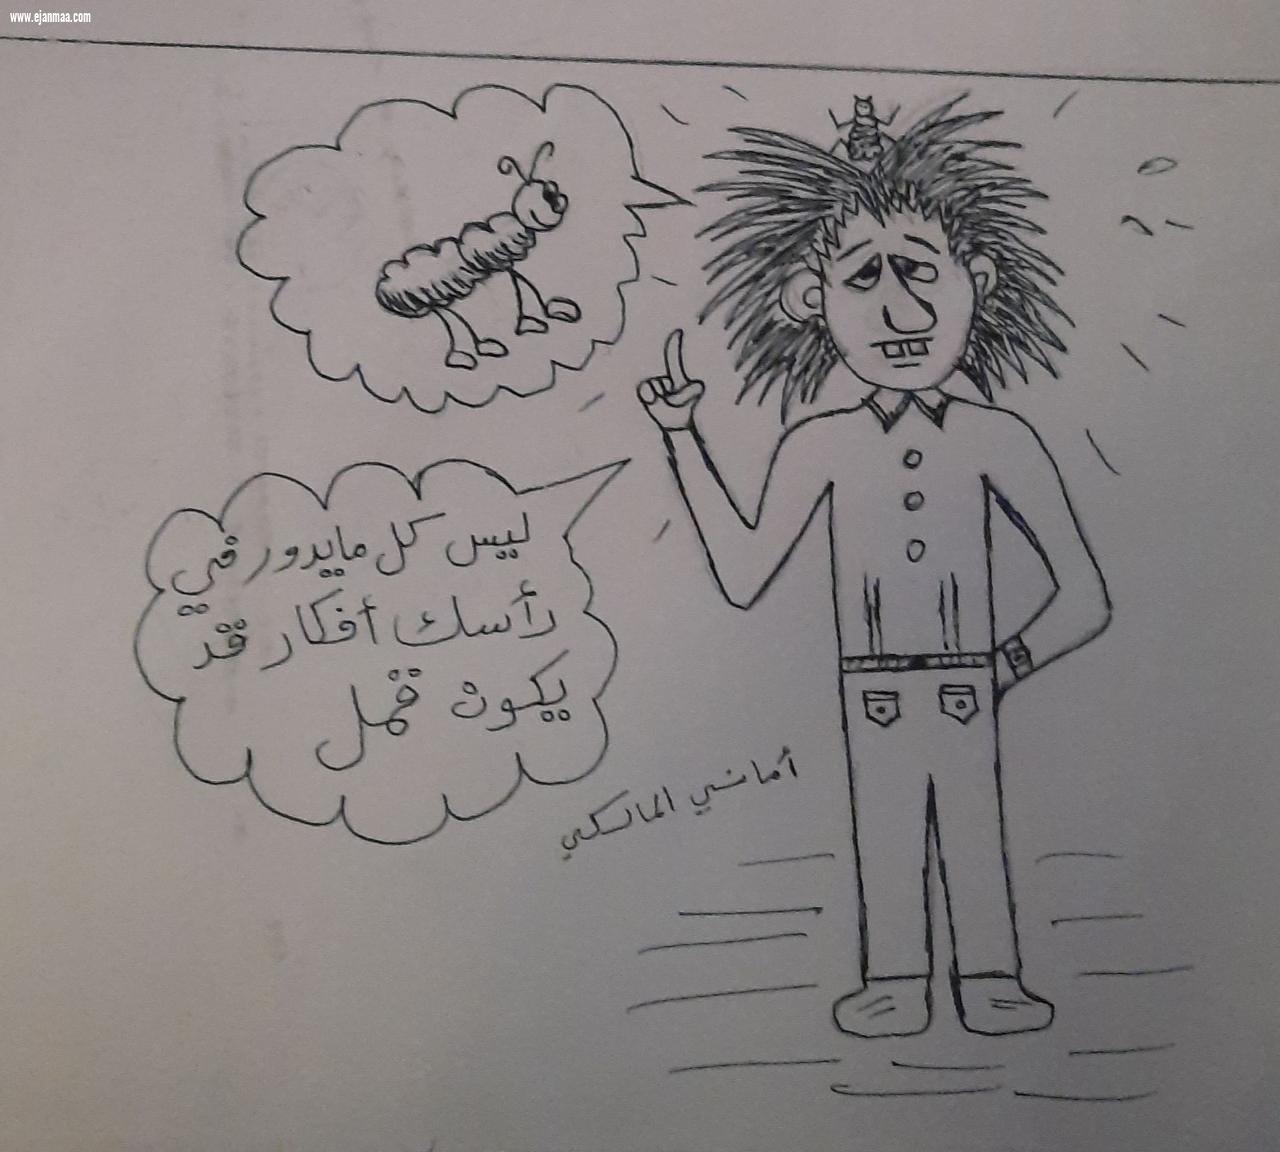 www.ejanmaa.com
ليس كل مايدور في
رأسك أفكار قد
يكون قمل
أماني المالكي